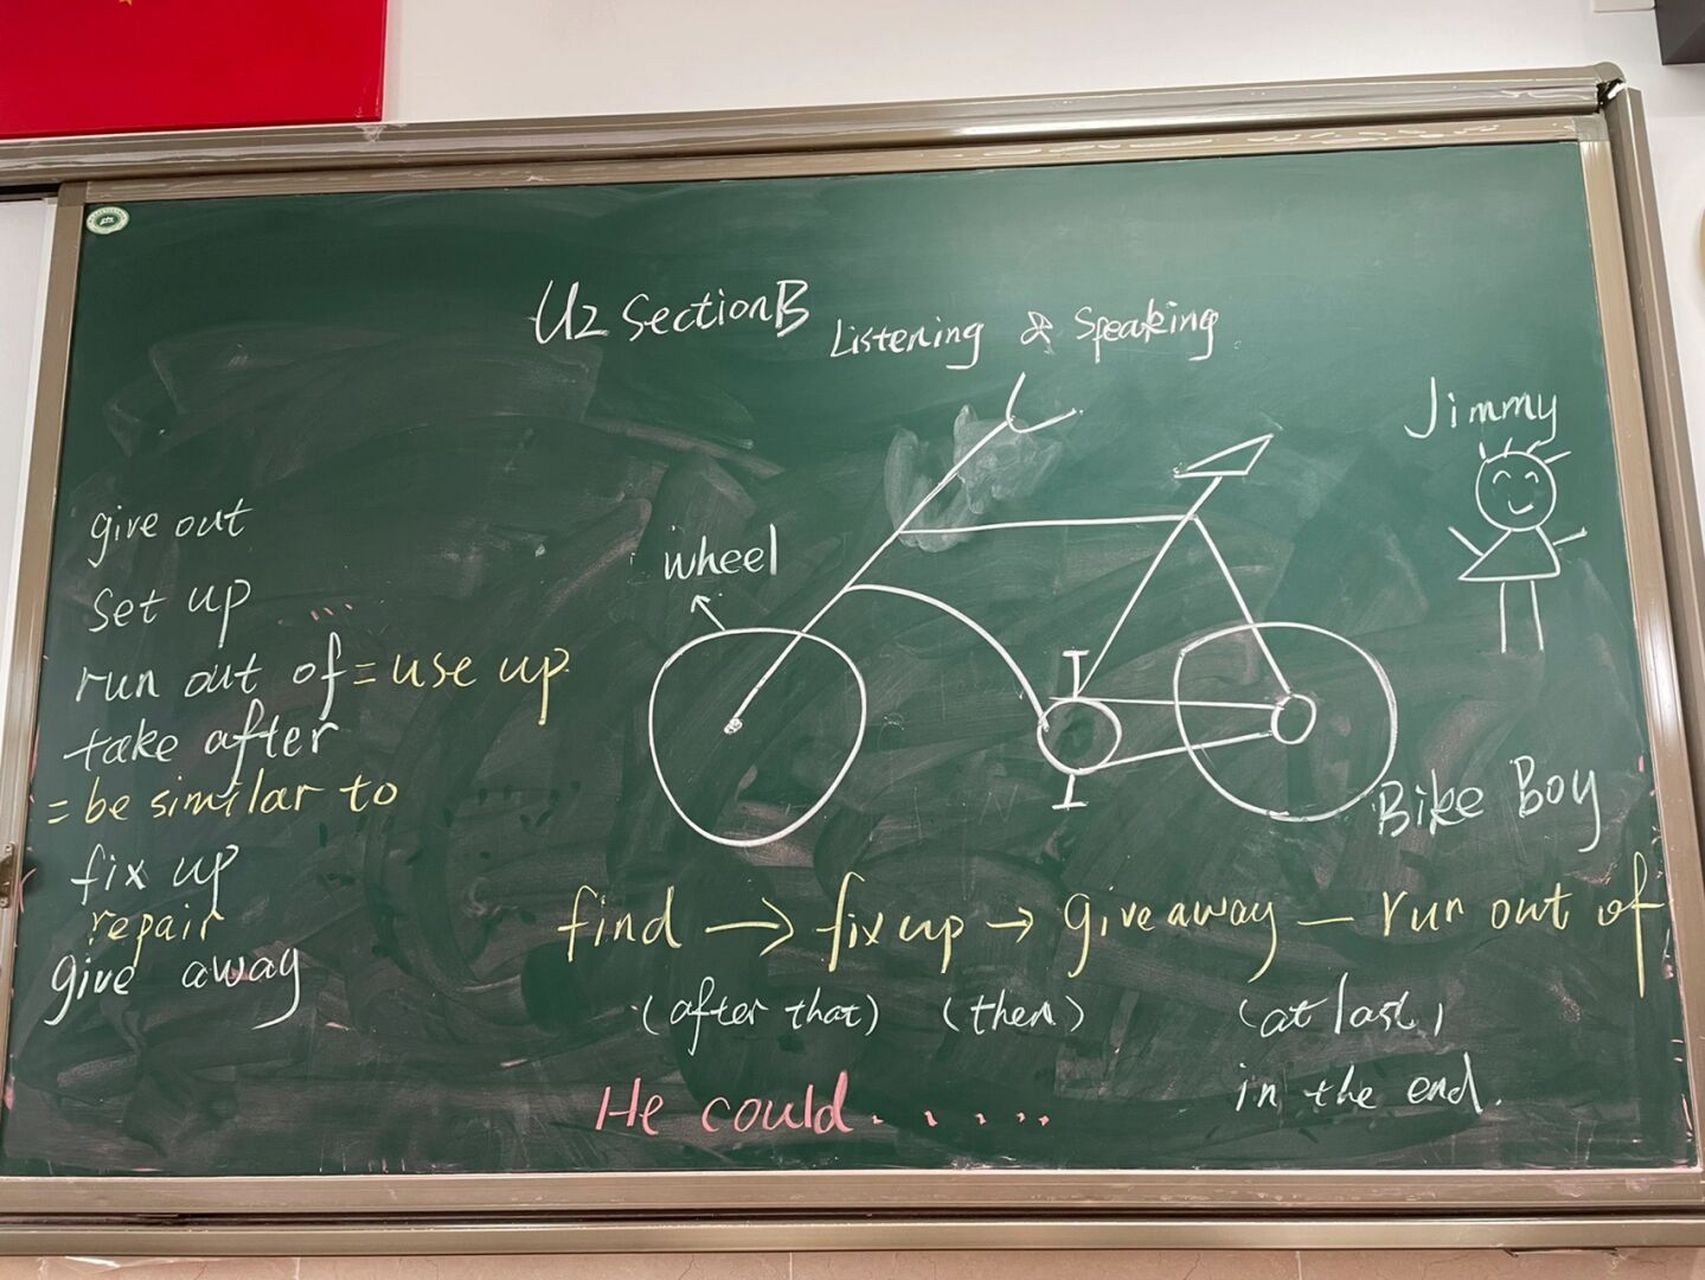 U2 Section B Listening & Speaking
Jimmy
give out
wheel
set up
run out of = use up
take after
= be similar to
Bike Boy
fix up
repair
give away
find → fix up → give away — run out of
(after that) (then) (at last)
in the end.
He could......